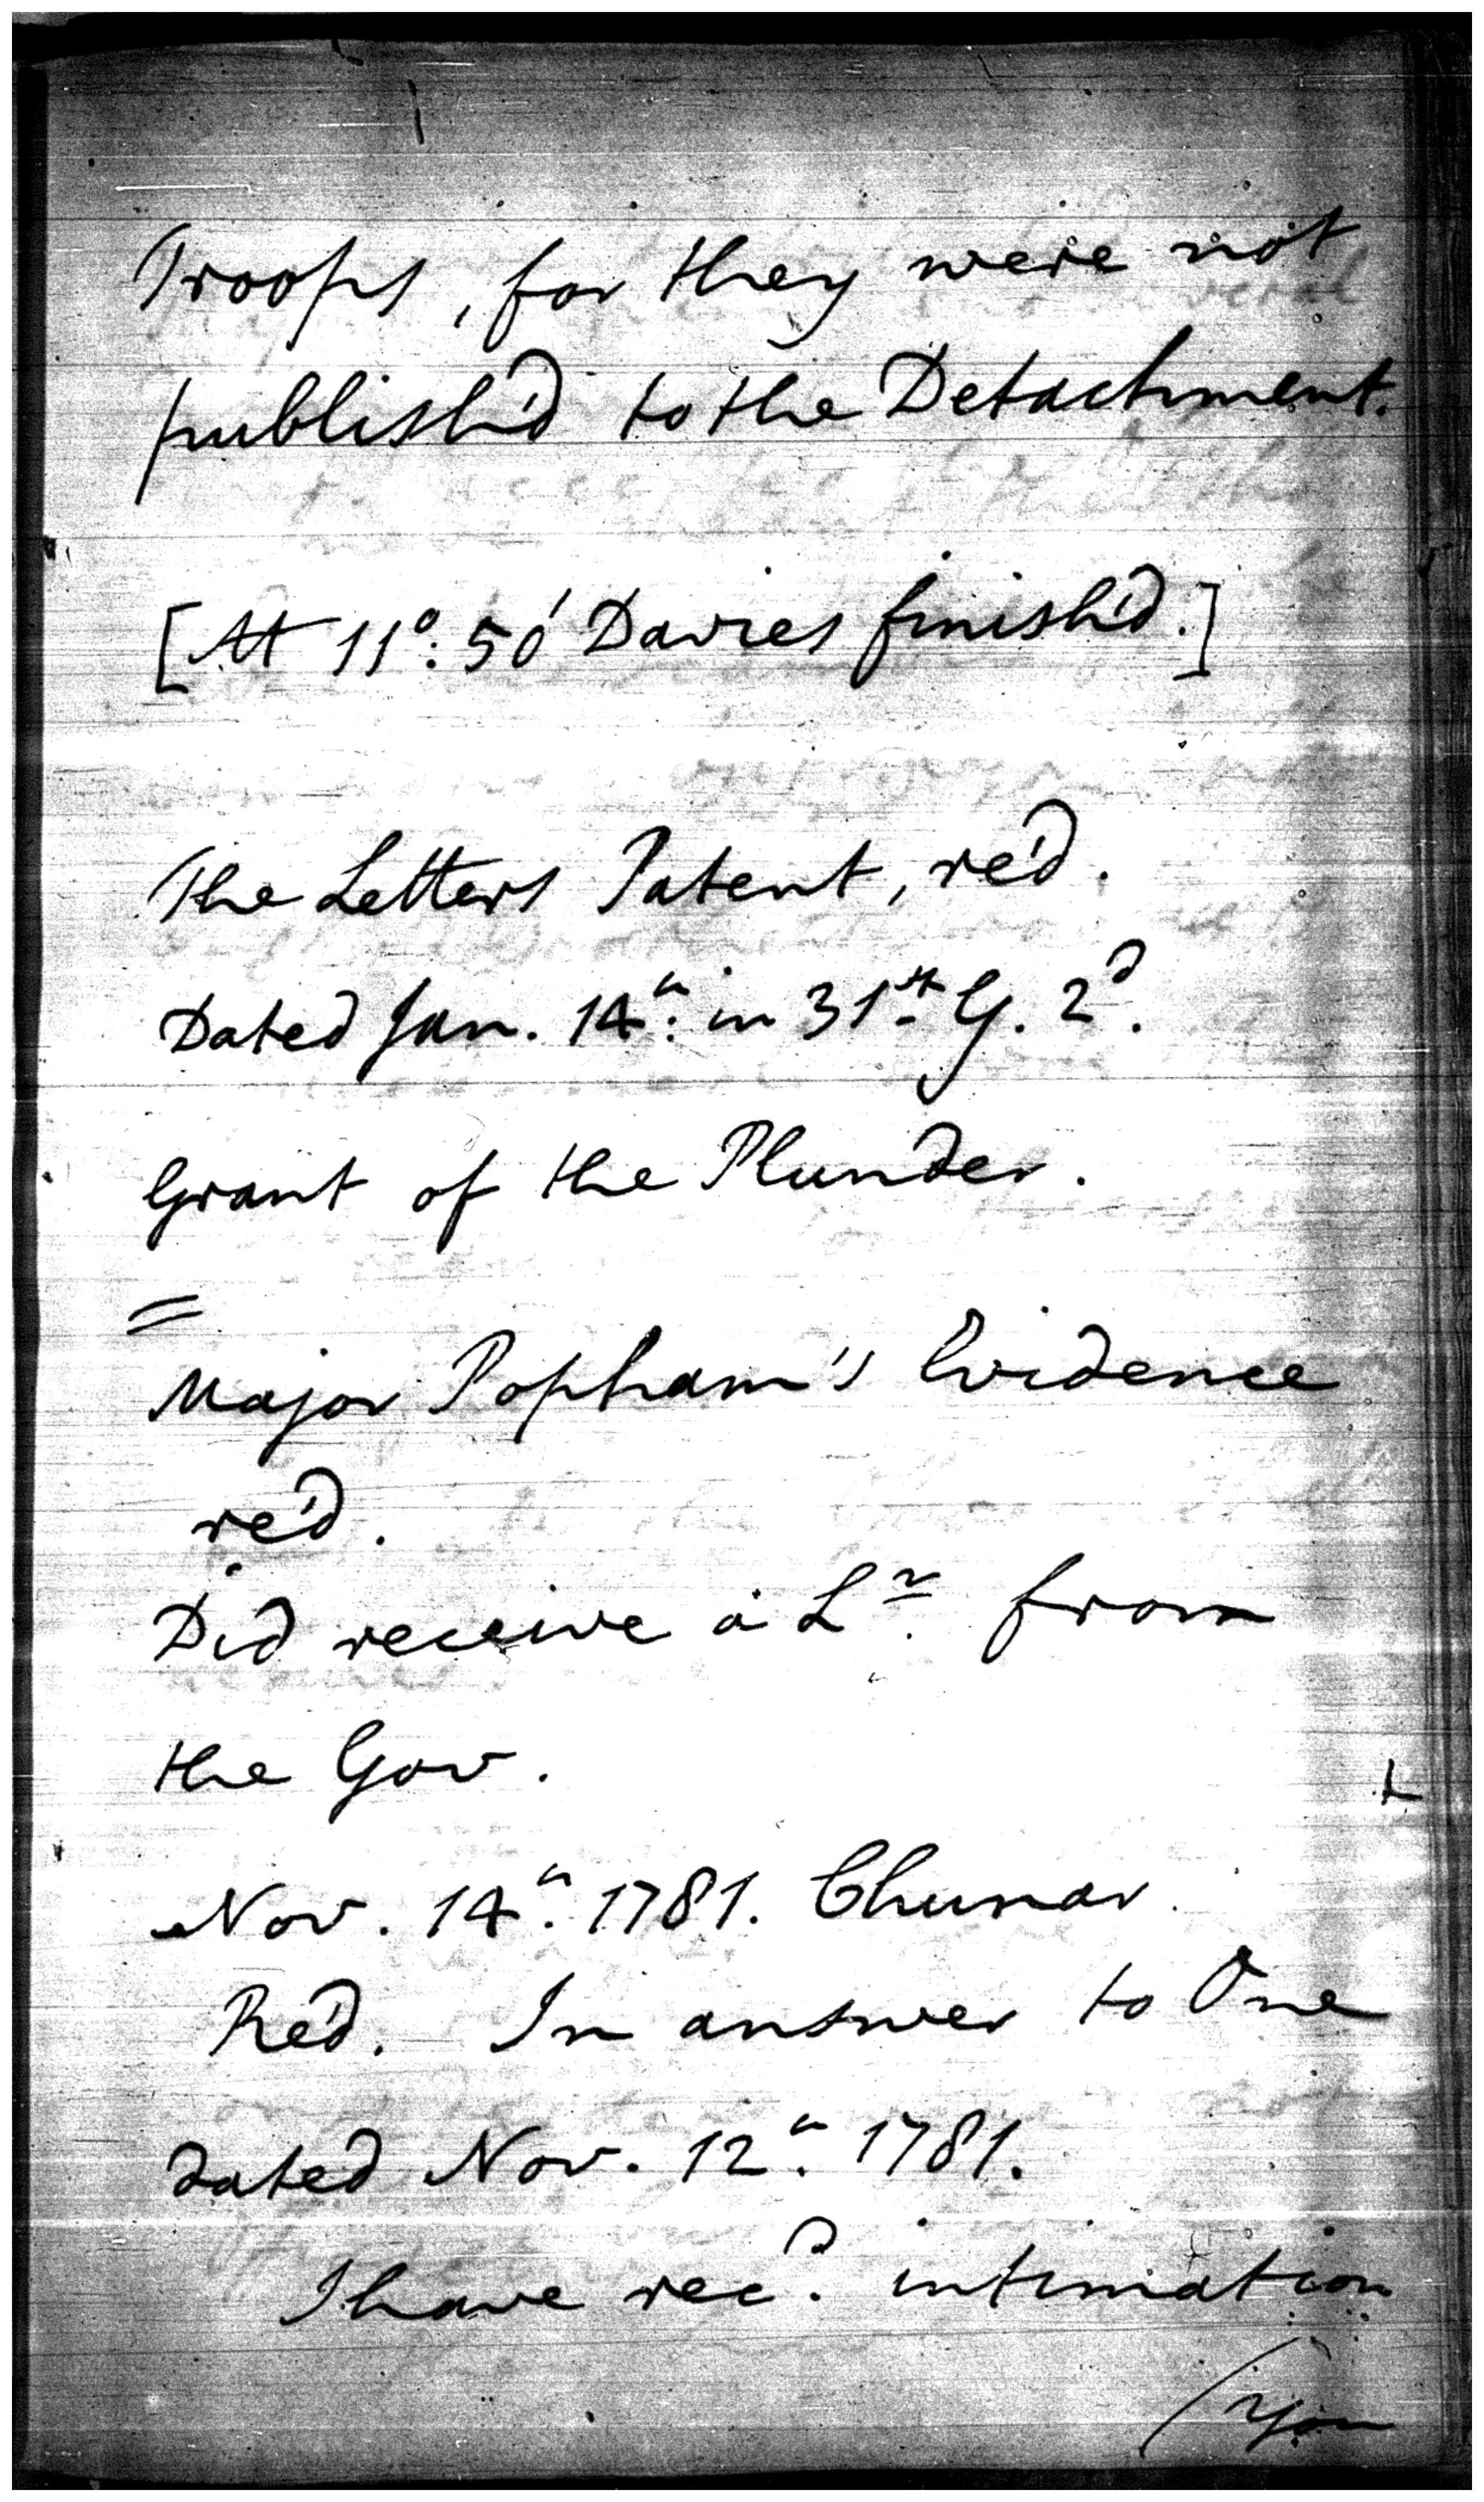 Troops, for they were not
publish'd to the Detachment.
[At 11°: 50' Davies finish'd.]
The Letters Patent, re'd.
Dated Jan. 14th: in 31st G. 2d.
Grant of the Plunder.
=
Major Popham's Evidence
re'd.
Did receive a Lr. from
the Gov.
Nov. 14th: 1781. Chunar.
Re'd. In answer to One
dated Nov. 12th: 1781.
I have rec'd. intimation
(You